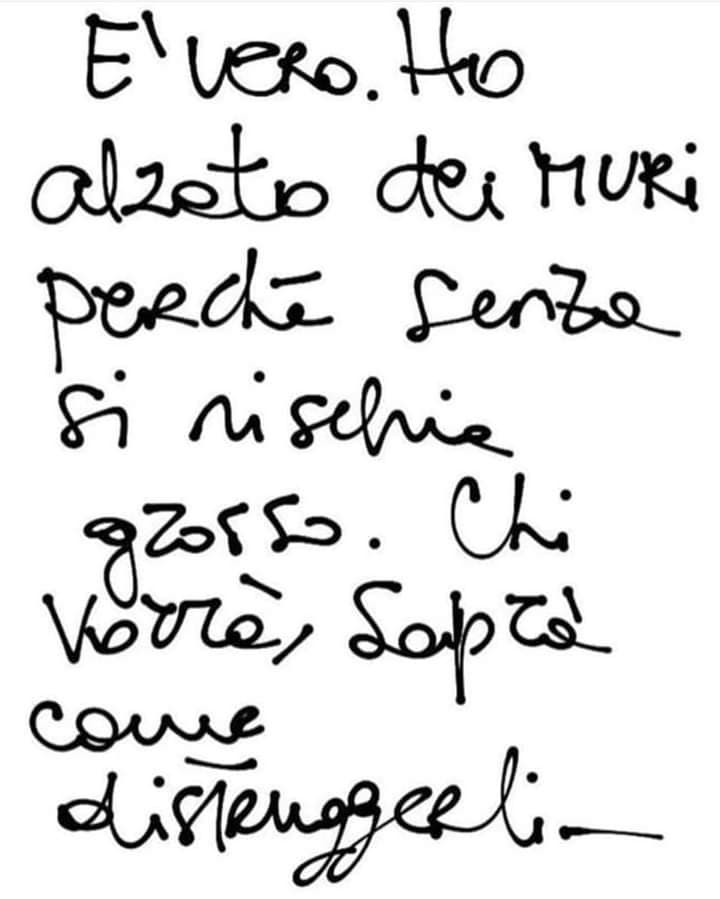 E' vero. Ho
alzato dei MURi
perchē senza
si rischia
grosso. Chi
Vorrà, Saprà
come
distruggerli_